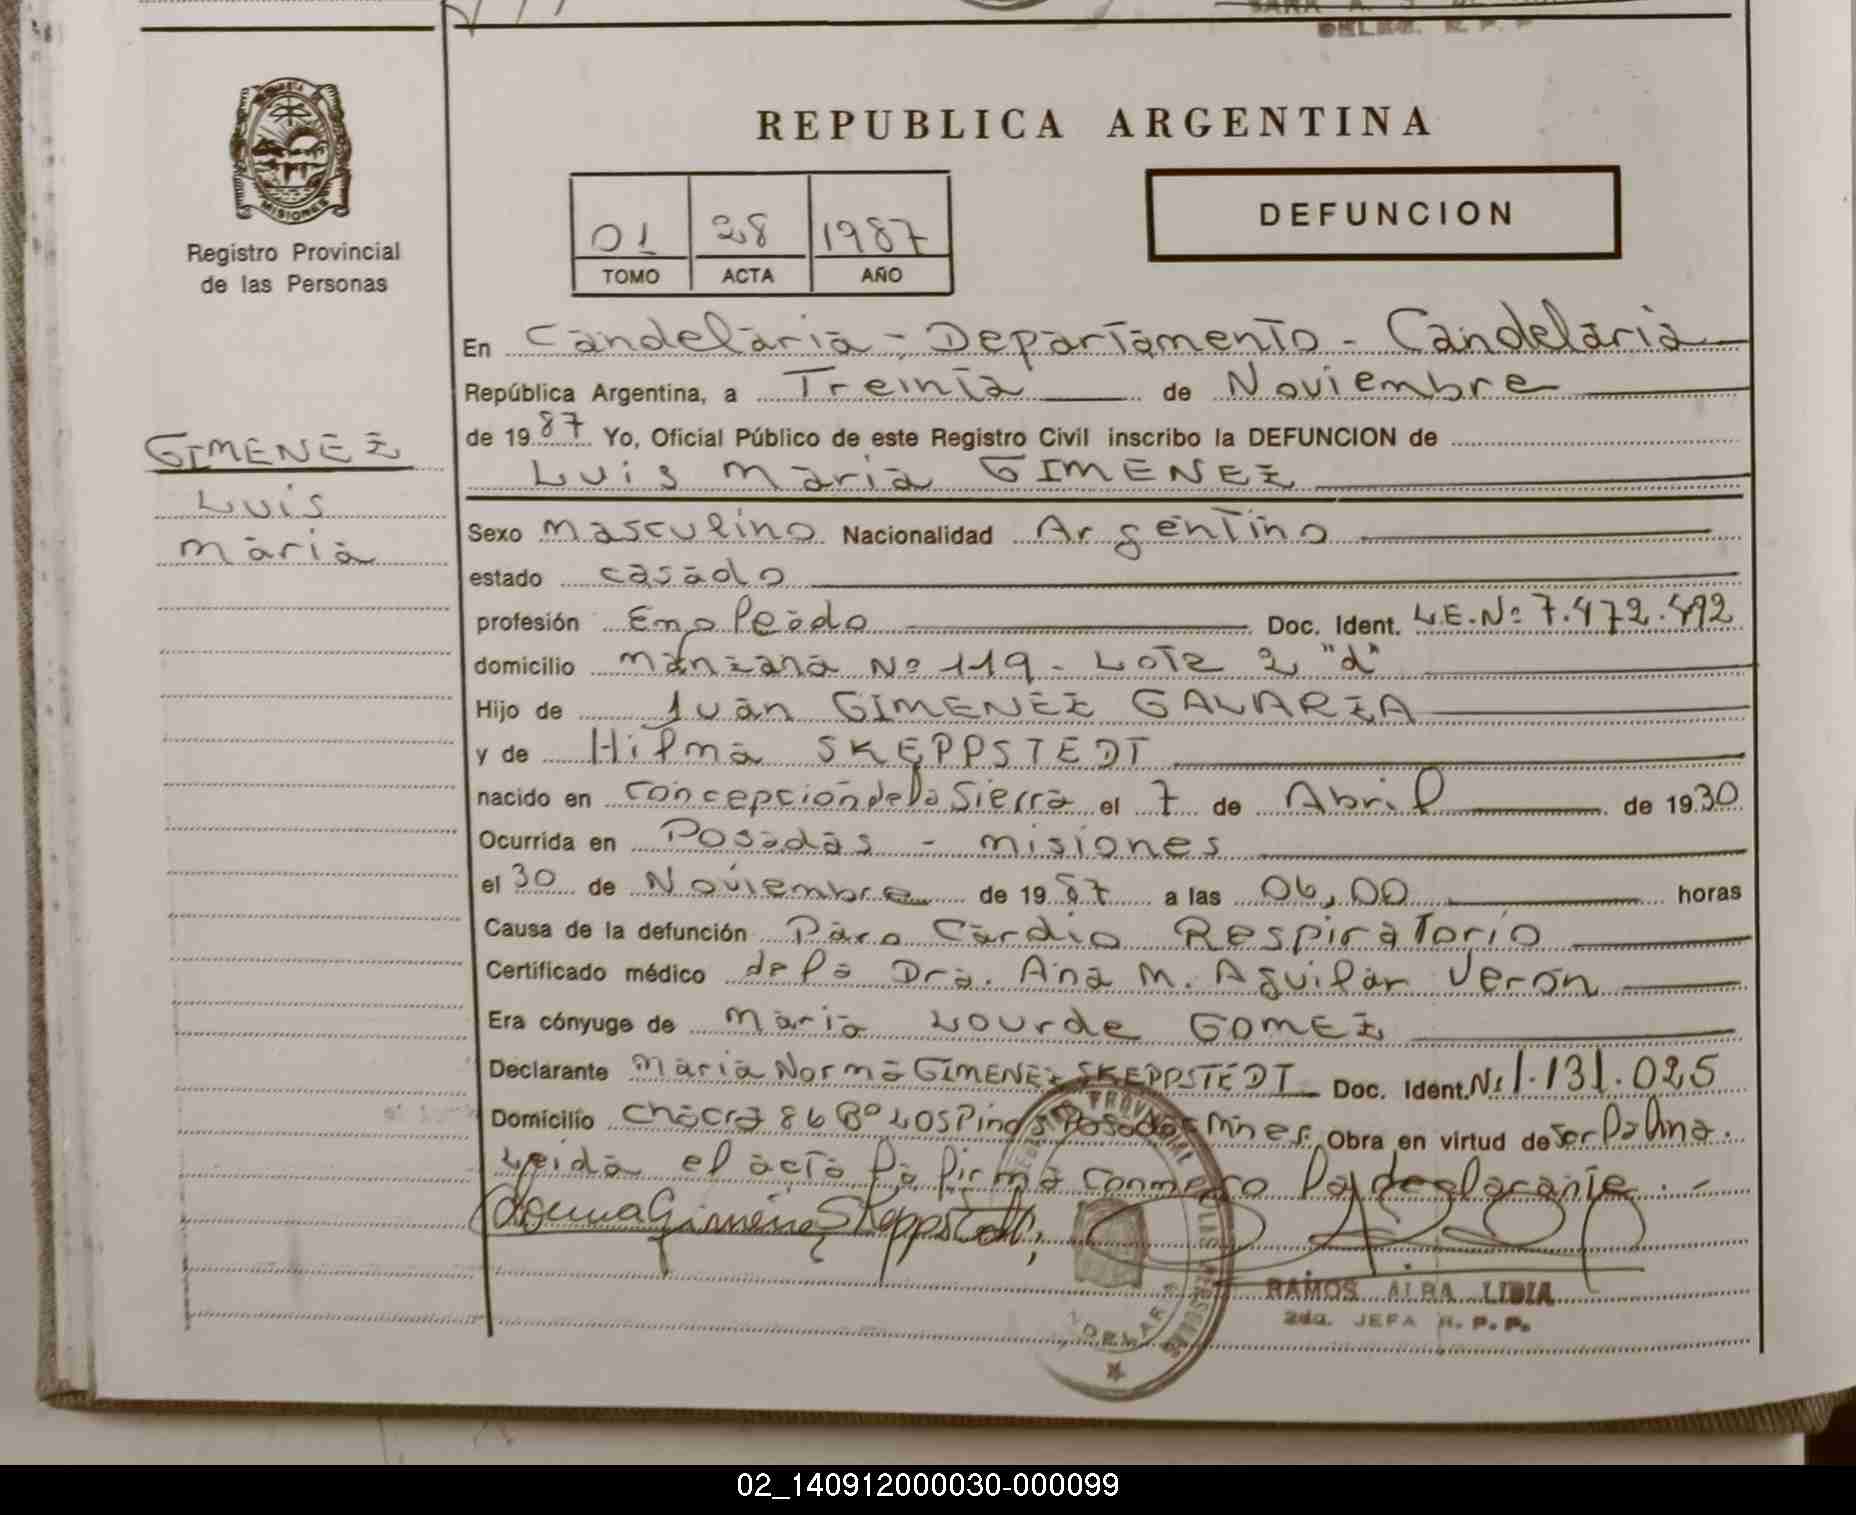 REPUBLICA ARGENTINA
MISIONES
Registro Provincial
de las Personas
01 28 1987
TOMO ACTA AÑO
DEFUNCION
GIMENEZ
Luis
Maria
En Candelaria - Departamento - Candelaria
República Argentina, a Treinta de Noviembre
de 1987 Yo, Oficial Público de este Registro Civil inscribo la DEFUNCION de
Luis Maria GIMENEZ
Sexo Masculino Nacionalidad Argentino
estado casado
profesión Empleado Doc. Ident. L.E.Nº 7.472.492
domicilio Manzana Nº 119 - Lote 2 "d"
Hijo de Juan GIMENEZ GALARZA
y de Hilma SKEPPSTEDT
nacido en Concepcion de la Sierra el 7 de Abril de 1930
Ocurrida en Posadas - Misiones
el 30 de Noviembre de 1987 a las 06,00 horas
Causa de la defunción Paro Cardio Respiratorio
Certificado médico de la Dra. Ana M. Aguilar Veron
Era cónyuge de Maria Lourde GOMEZ
Declarante Maria Norma GIMENEZ SKEPPSTEDT Doc. Ident. Nº 1.131.025
Domicilio Chacra 86 Bº Los Pinos Posadas Mnes. Obra en virtud de Ser
Leida el acta la firma conmigo la declarante. -
Norma Gimenez Skeppstedt
RAMOS ALBA LIDIA
2da. JEFA R. P. P.
02_140912000030-000099